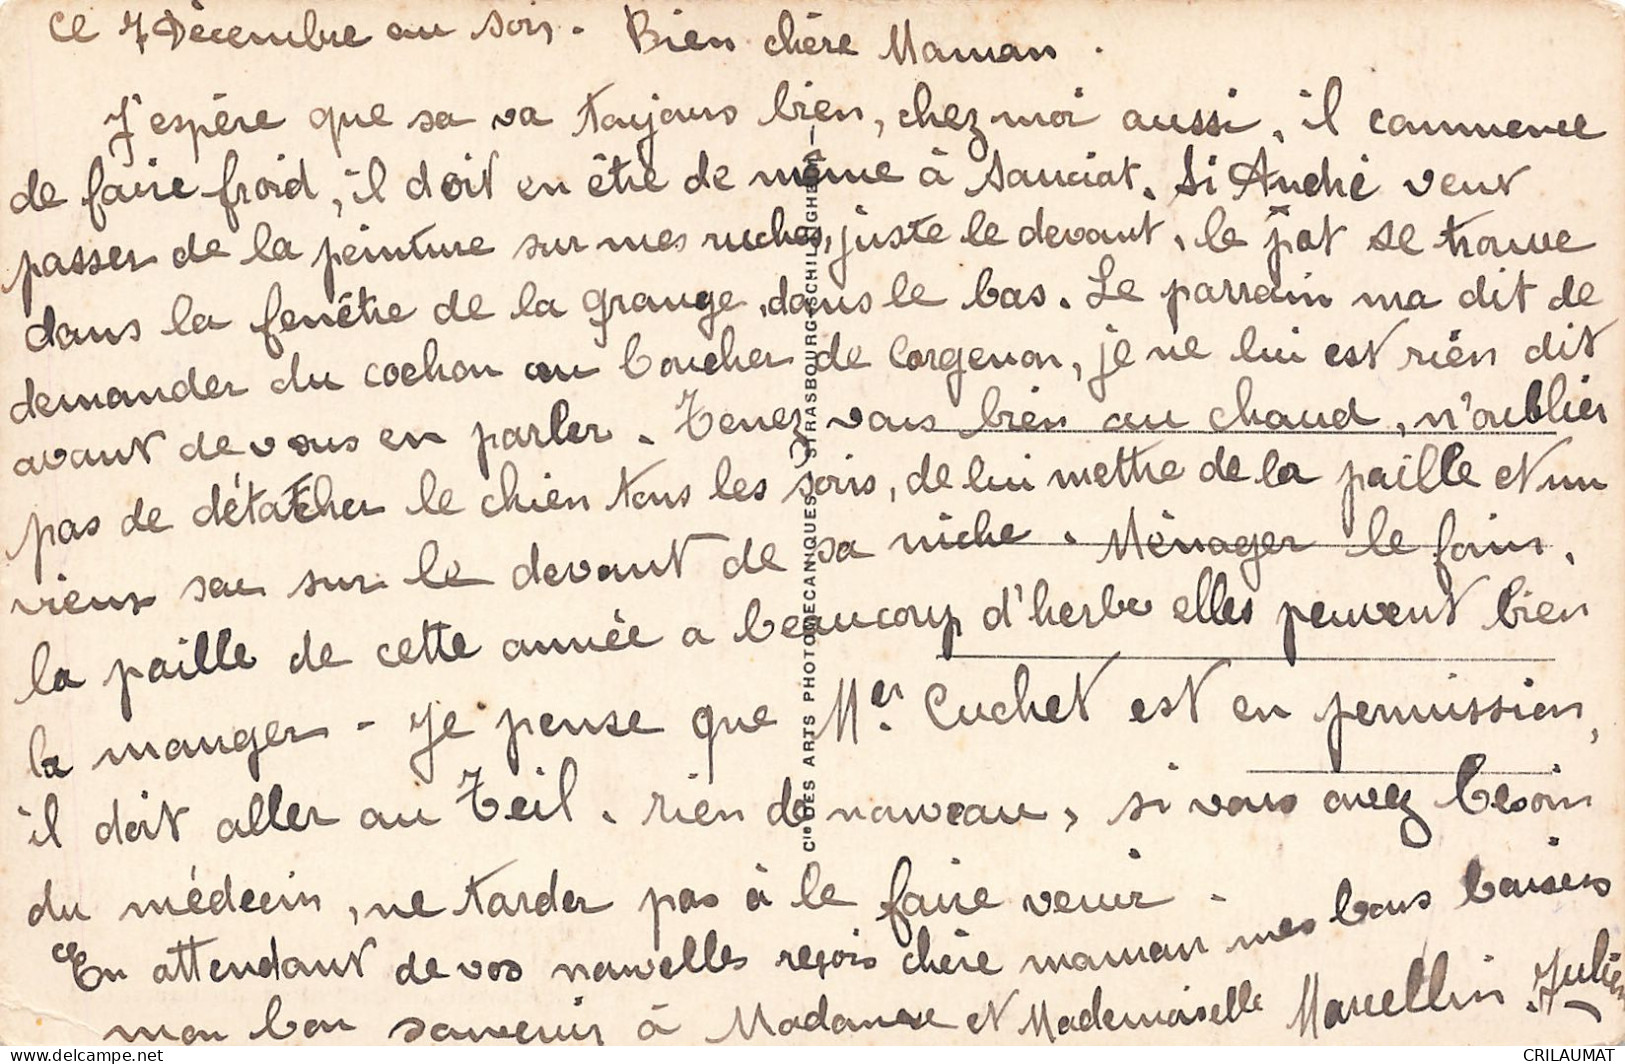 Ce 7 Décembre au soir. Bien chère Maman.
J'espère que sa va toujours bien, chez moi aussi, il commence
de faire froid, il doit en être de même à Sanciat. Si André veut
passer de la peinture sur mes ruches, juste le devant, le pot se trouve
dans la fenêtre de la grange, dans le bas. Le parrain ma dit de
demander du cochon au boucher de Corgenon, je ne lui est rien dit
avant de vous en parler. Tenez vous bien au chaud, n'oublier
pas de détatcher le chien tous les soirs, de lui mettre de la paille et un
vieux sac sur le devant de sa niche. Ménager le foin,
la paille de cette année a beaucoup d'herbe elles peuvent bien
la manger - Je pense que Mer Cuchet est en permission,
il doit aller au Teil. rien de nouveau, si vous avez besoin
du médecin, ne tarder pas à le faire venir.
En attendant de vos nouvelles reçois chère maman mes bons baisers
mon bon souvenir à Madame et Mademoiselle Marcellin. Julien
Cie DES ARTS PHOTOMECANIQUES STRASBOURG-SCHILTIGHEIM
CRILAUMAT